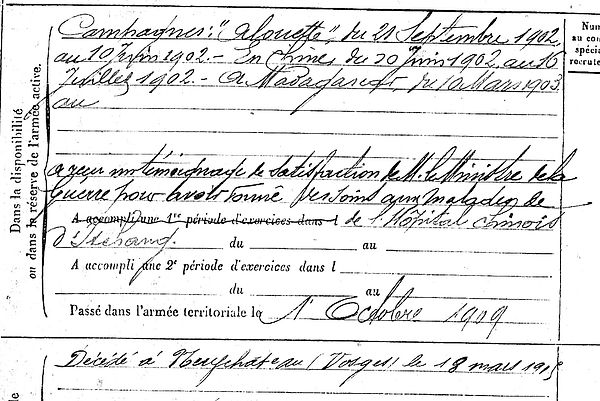 Campagnes : "Alouette", du 21 Septembre 1902
au 10 Juin 1902. - En Chine, du 20 Juin 1902 au 16
Juillet 1902. - A Madagascar, du 10 Mars 1903
au
a reçu un témoignage de satisfaction de M. le Ministre de la
Guerre pour avoir donné des soins aux malades de
A accompli une 1re période d'exercices dans l de l'Hôpital chinois
du au
A accompli une 2e période d'exercices dans l
du au
Passé dans l'armée territoriale le 1r Octobre 1909
Décédé à Neufchateau (Vosges) le 18 mars 1915
Dans la disponibilité
ou dans la réserve de l'armée active.
Num
au co
spéci
recrute
le